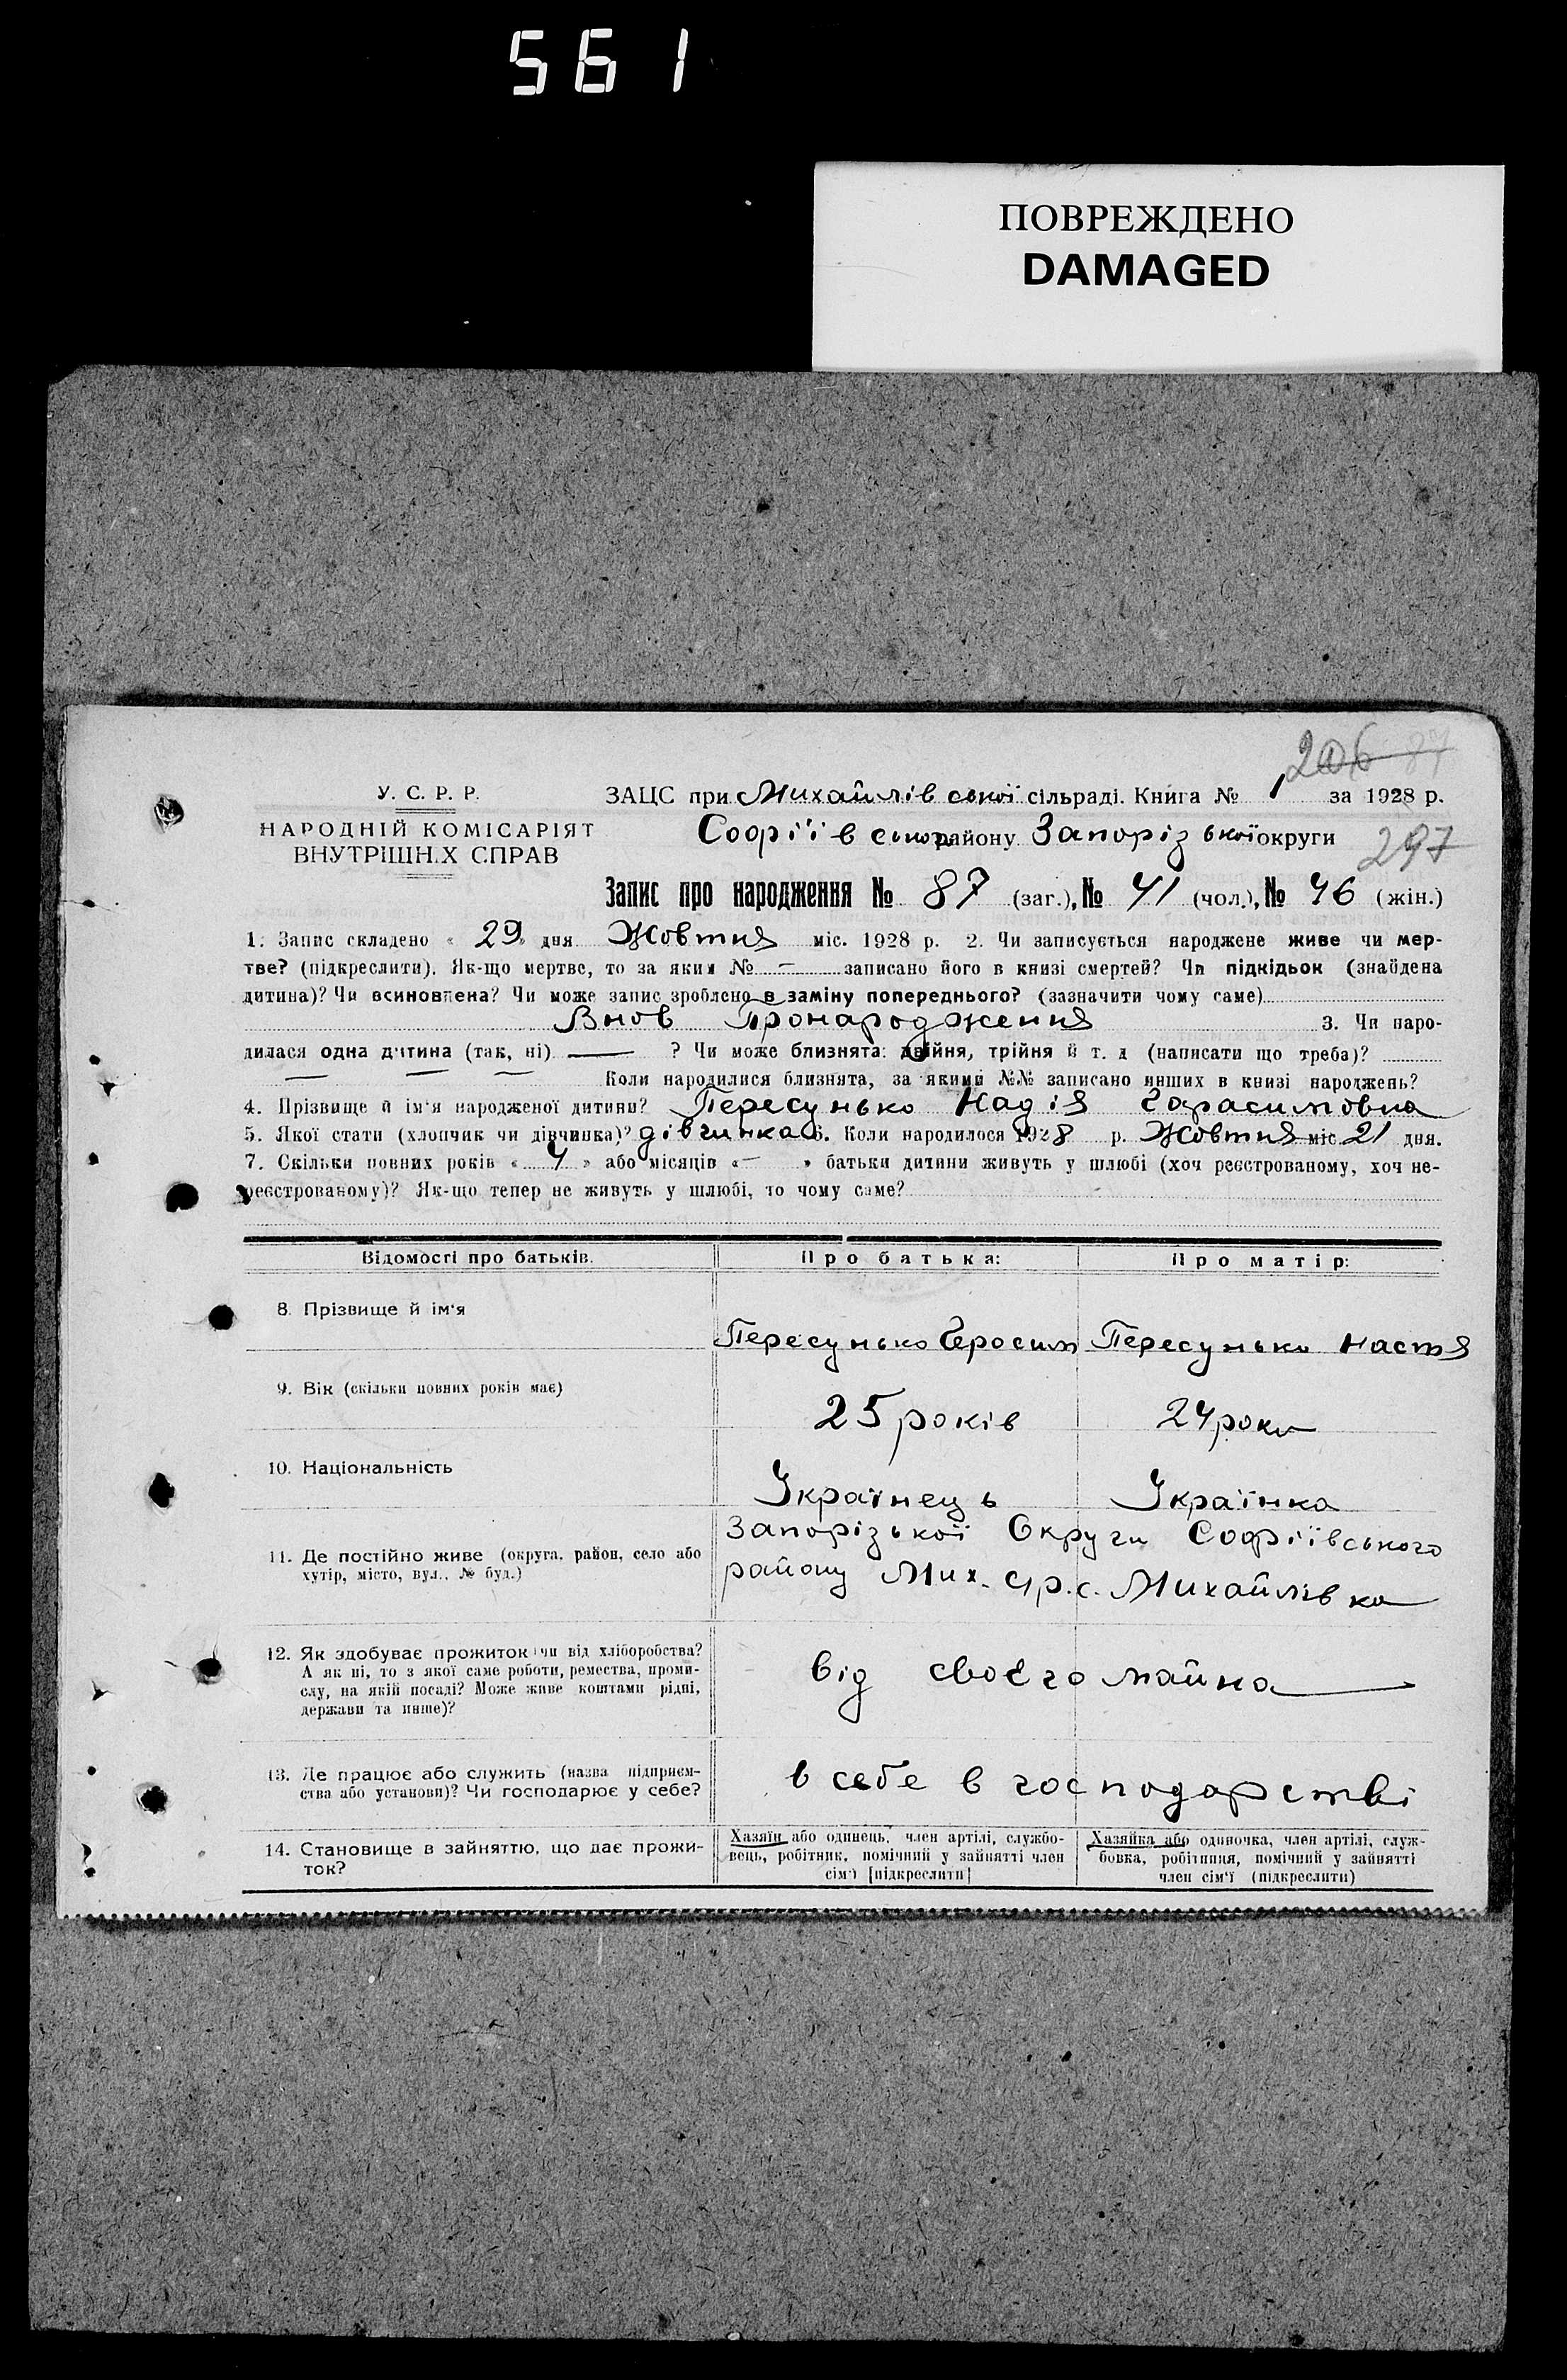 561
ПОВРЕЖДЕНО
DAMAGED
206 87
У. С. Р. Р.
НАРОДНІЙ КОМІСАРІЯТ
ВНУТРІШНІХ СПРАВ
ЗАЦС при Михайлівської сільраді. Книга № 1 за 1928 р.
Софіївського району Запорізької округи
297
Запис про народження № 87 (заг.), № 41 (чол.), № 46 (жін.)
1. Запис складено « 29 » дня Жовтня міс. 1928 р. 2. Чи записується народжене живе чи мер-
тве? (підкреслити). Як-що мертве, то за яким № — записано його в книзі смертей? Чи підкідьок (знайдена
дитина)? Чи всиновлена? Чи може запис зроблено в заміну попереднього? (зазначити чому саме)
Внов Пронародження 3. Чи наро-
дилася одна дитина (так, ні) — ? Чи може близнята: двійня, трійня й т. д (написати що треба)?
— — — Коли народилися близнята, за якими №№ записано инших в книзі народжень?
4. Прізвище й ім'я народженої дитини? Пересунько Надія Гарасимовна
5. Якої стати (хлопчик чи дівчинка)? дівчинка 6. Коли народилося 1928 р. Жовтня міс 21 дня.
7. Скільки повних років « 4 » або місяців « — » батьки дитини живуть у шлюбі (хоч реєстрованому, хоч не-
реєстрованому)? Як-що тепер не живуть у шлюбі, то чому саме?
Відомості про батьків. Про батька: Про матір:
8. Прізвище й ім'я
Пересунько Геросим Пересунько Настя
9. Вік (скільки повних років має)
25 років 24 роки
10. Національність
Українець Українка
Запорізької Округи Софіївського
11. Де постійно живе (округа, район, село або
хутір, місто, вул., № буд.)
району Мих. с/р. с. Михайлівка
12. Як здобуває прожиток чи від хліборобства?
А як ні, то з якої саме роботи, ремества, проми-
слу, на якій посаді? Може живе коштами рідні,
держави та инше)?
від своєго майна
13. Де працює або служить (назва підприєм-
ства або установи)? Чи господарює у себе?
в себе в господарстві
14. Становище в зайняттю, що дає прожи-
ток?
Хазяїн або одинець, член артілі, службо-
вець, робітник, помічний у зайнятті член
сім'ї [підкреслити]
Хазяйка або одиночка, член артілі, служ-
бовка, робітниця, помічний у зайнятті
член сім'ї (підкреслити)